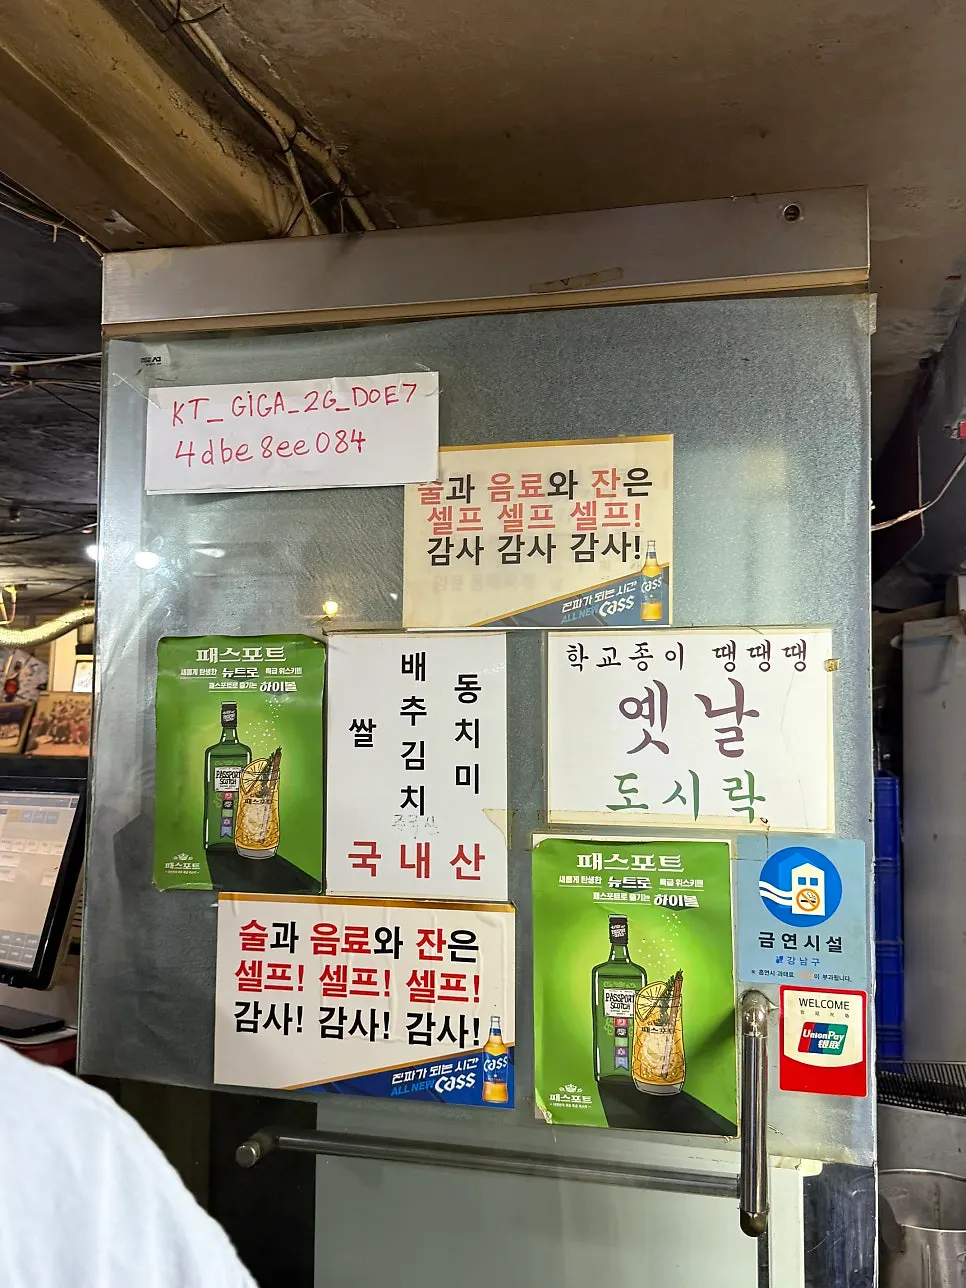 KT_GiGA_2G_D0E7
4dbe8ee084
술과 음료와 잔은
셀프 셀프 셀프!
감사 감사 감사!
진짜가 되는 시간
ALL NEW Cass
Cass
패스포트
새롭게 탄생한 뉴트로 특급 위스키트
패스포트로 즐기는 하이볼
PASSPORT
SCOTCH
패스포트
패스포트
쌀
배추김치
동치미
국내산
학교종이 땡땡땡
옛날
도시락
술과 음료와 잔은
셀프! 셀프! 셀프!
감사! 감사! 감사!
진짜가 되는 시간
ALL NEW Cass
Cass
패스포트
새롭게 탄생한 뉴트로 특급 위스키트
패스포트로 즐기는 하이볼
PASSPORT
SCOTCH
패스포트
패스포트
금연시설
강남구
※ 흡연시 과태료 이 부과됩니다.
WELCOME
UnionPay
银联